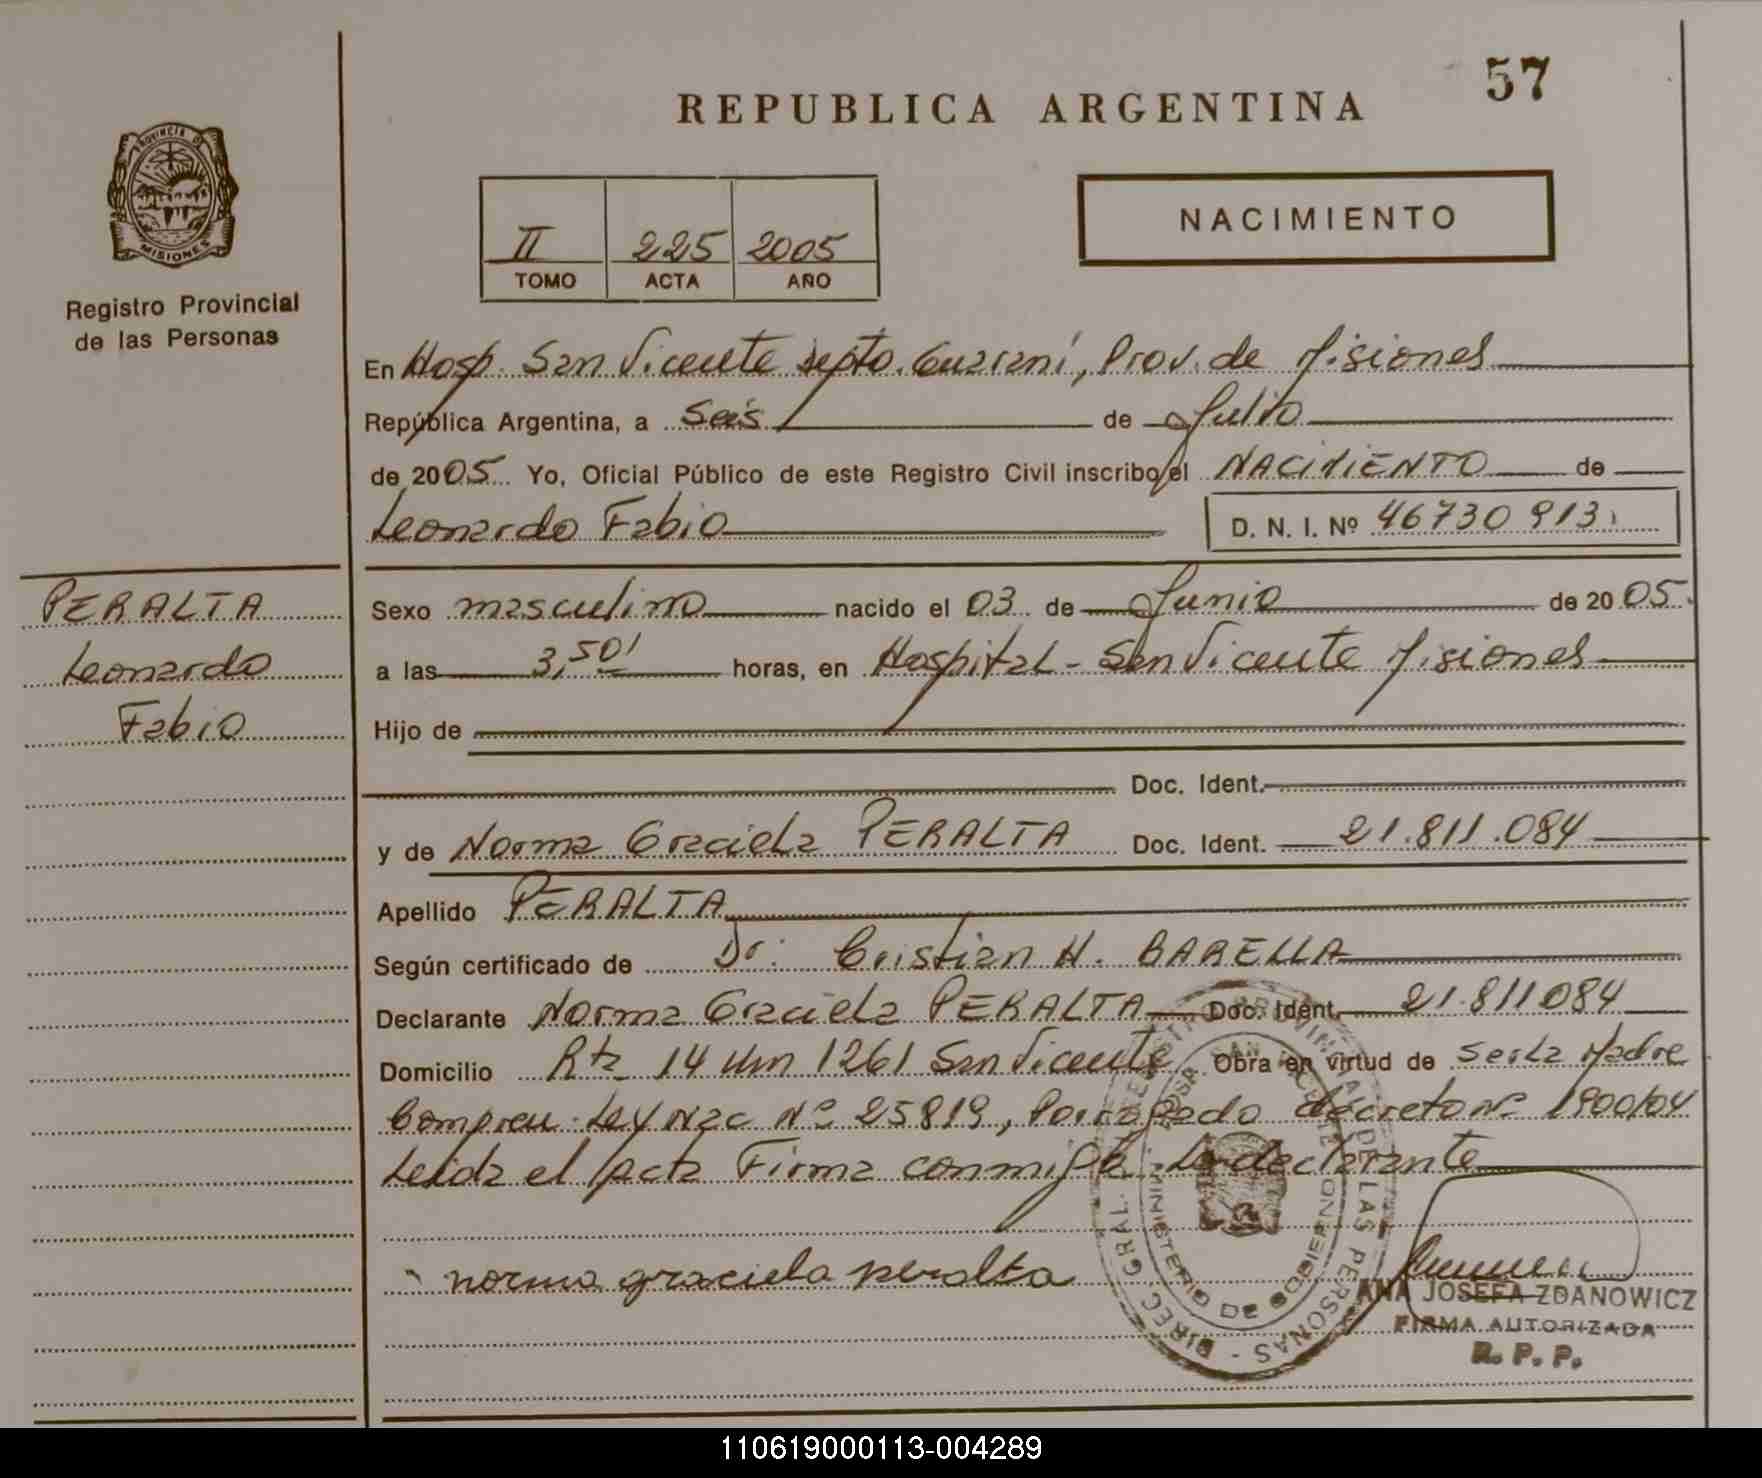 57
REPUBLICA ARGENTINA
PROVINCIA DE
MISIONES
Registro Provincial
de las Personas
II 225 2005
TOMO ACTA AÑO
NACIMIENTO
En Hosp. San Vicente Depto. Guaraní, Prov. de Misiones
República Argentina, a Seis de Julio
de 2005 Yo, Oficial Público de este Registro Civil inscribo el NACIMIENTO de
Leonardo Fabio D. N. I. Nº 46730913
PERALTA
Leonardo
Fabio
Sexo masculino nacido el 03 de Junio de 2005.
a las 3,50' horas, en Hospital - San Vicente Misiones
Hijo de
Doc. Ident.
y de Norma Graciela PERALTA Doc. Ident. 21.811.084
Apellido PERALTA
Según certificado de Dr. Cristian H. BARELLA
Declarante Norma Graciela PERALTA Doc. Ident. 21.811084
Domicilio Rta 14 Km 1261 San Vicente Obra en virtud de ser la Madre
Compren. Ley Nac Nº 25819, Prorrogado decreto nº 1900/04
Leida el Acta Firma conmigo La declarante
norma graciela peralta
DIREC. GRAL. REGISTRO PROVINCIAL DE LAS PERSONAS
SAN VICENTE - MISIONES
MINISTERIO DE GOBIERNO
ANA JOSEFA ZDANOWICZ
FIRMA AUTORIZADA
R. P. P.
110619000113-004289